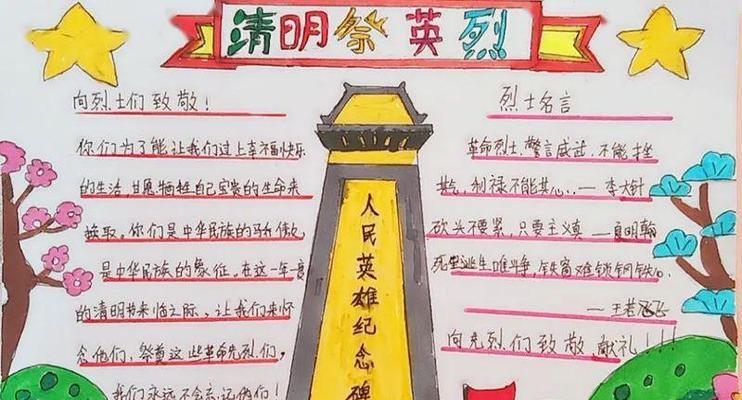 清明祭英烈
向烈士们致敬!
你们为了能让我们过上幸福快乐
的生活,甘愿牺牲自己宝贵的生命来
换取。你们是中华民族的
是中华民族的象征。在这一年一度
的清明节来临之际,让我们来怀
念他们,祭奠这些革命先烈们,
我们永远不会忘记他们!
人民英雄纪念碑
烈士名言
革命烈士,警言威武,不能挫
其气,利禄不能其心。——李大钊
砍头不要紧,只要主义真——夏明翰
死里逃生唯斗争,铁窗难锁钢铁心
——王若飞
向先烈们致敬 献礼!!!